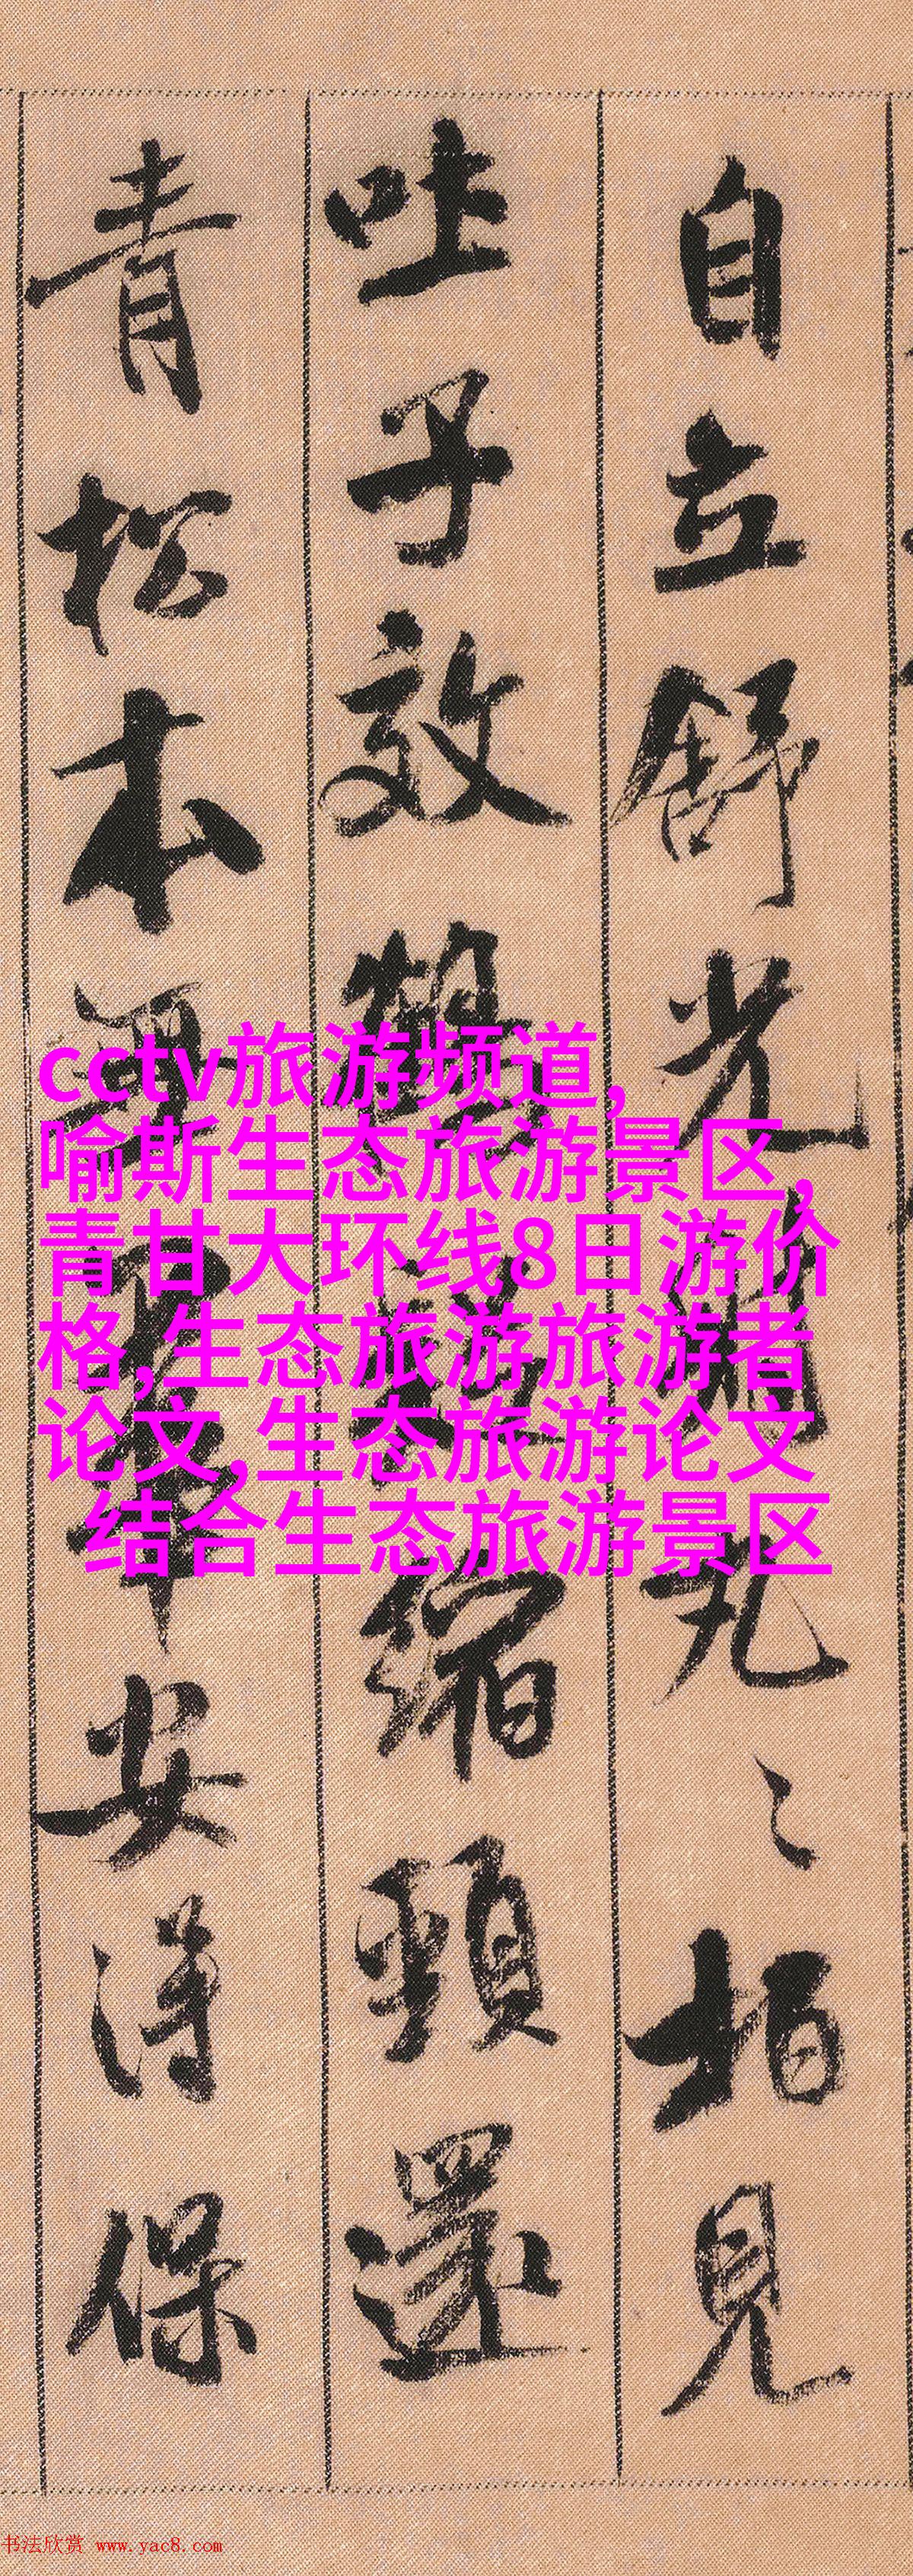 自立舒光照九〻柏見
吐子效鸎歌縮頸還
青松本無華安得保
cctv旅游频道,
喻斯生态旅游景区,
青甘大环线8日游价
格,生态旅游旅游者
论文,生态旅游论文
结合生态旅游景区
书法欣赏 www.yac8.com